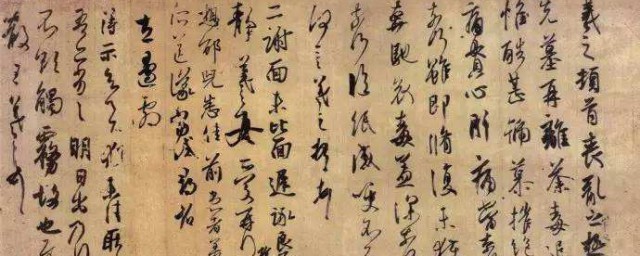 羲之頓首喪亂之極
先墓再離荼毒追
惟酷甚號慕摧絕
痛貫心肝痛當奈
奈何雖即脩復未獲
奔馳哀毒益深奈
奈何臨紙感哽不
何言羲之頓首
二謝面未比面遲詠良
靜羲之女愛再拜
想邵兒悉佳前患者善
所送議當試尋省
左邊劇
得示知足下猶未佳耿
吾亦劣劣明日出乃行
不欲觸霧故也遲
散王羲之頓